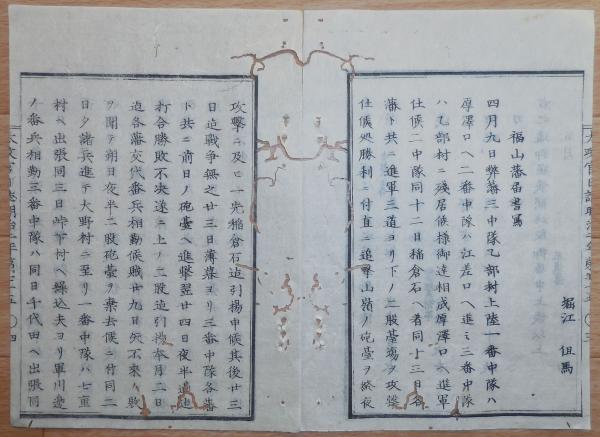 堀江　但馬
福山藩届書寫
四月九日弊藩三中隊乙部村上陸一番中隊ハ
厚澤口ヘ二番中隊ハ江差口ヘ進ミ三番中隊
ハ乙部村ニ殘居候様御達相成厚澤口ヘ進軍
仕候二中隊同十二日稲倉石ヘ着同十三日各
藩ト共ニ進軍三道ヨリ下ノ二股臺場ヲ攻撃
仕候処勝利ニ付直ニ追撃山嶺ノ砲臺ヲ
攻撃ニ及ヒ一先稲倉石迠引揚申候其後廿三
日迠戰争無之廿三日薄暮ヨリ三番中隊各藩
ト共ニ前日ノ砲臺ヘ進撃翌廿四日夜半過迠
打合勝敗不決遂ニ上ノ二股迠引揚本月二日
迠各藩交代番兵相勤候賊廿九日矢不来ノ敗
ヲ聞テ朔日夜半二股砲臺ヲ棄去候ニ付同二
日夕諸兵進テ大野村ニ至リ一番中隊ハ七重
村ヘ出張同三日峠下村ヘ繰込夫ヨリ軍川邊
ノ番兵相勤三番中隊ハ同日千代田ヘ出張同